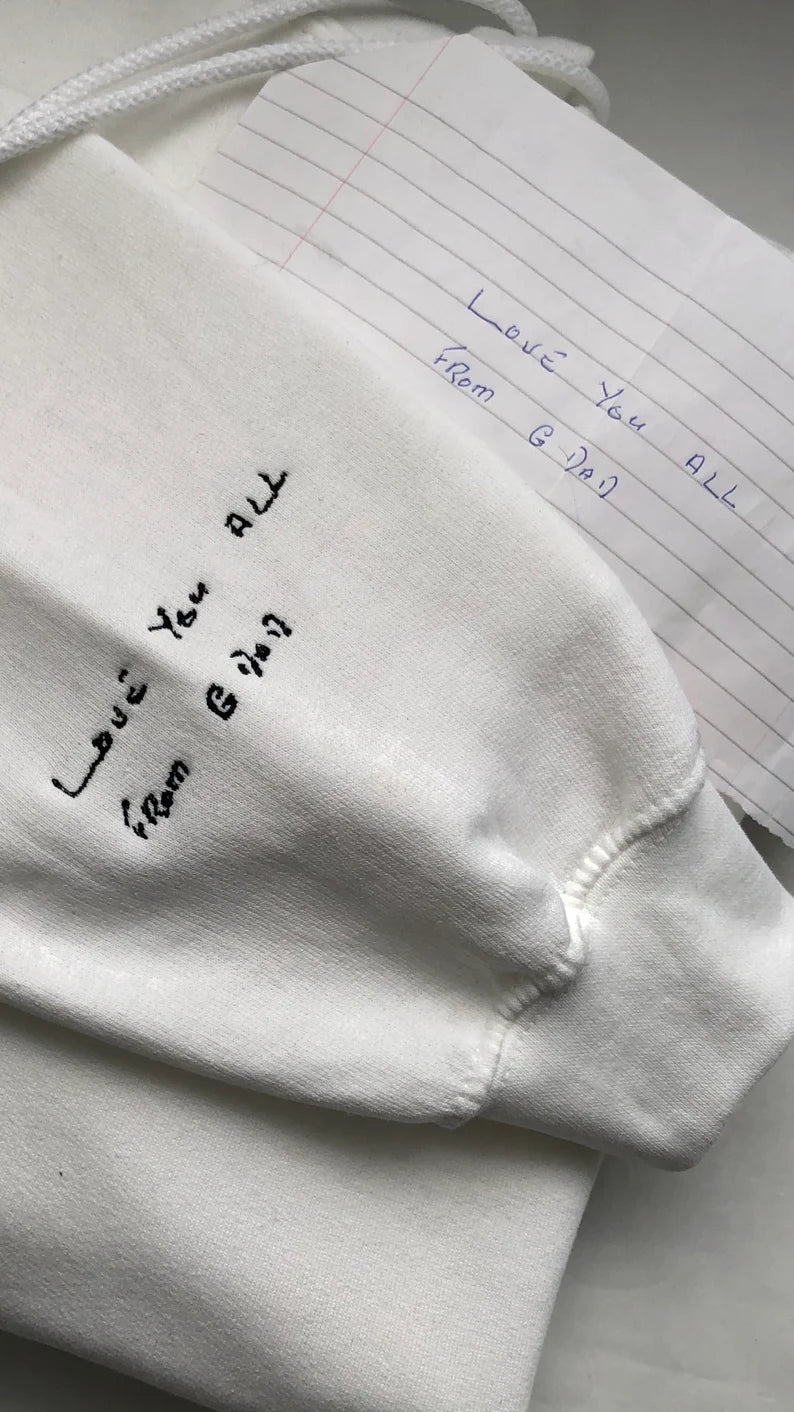 LOVE YOU ALL
FROM G DAD
LOVE YOU ALL
FROM G DAD